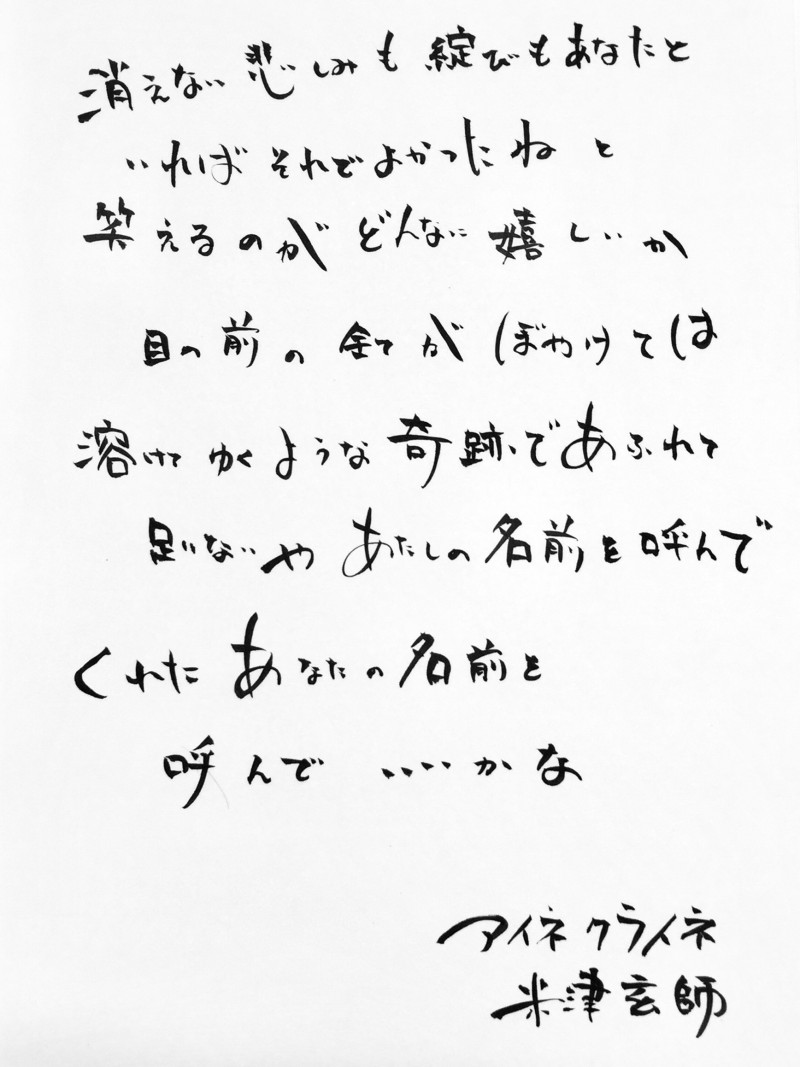 消えない悲しみも綻びもあなたと
いればそれでよかったねと
笑えるのがどんなに嬉しいか
目の前の全てがぼやけては
溶けてゆくような奇跡であふれて
足りないや あたしの名前を呼んで
くれた あなたの名前を
呼んで いいかな
アイネクライネ
米津玄師